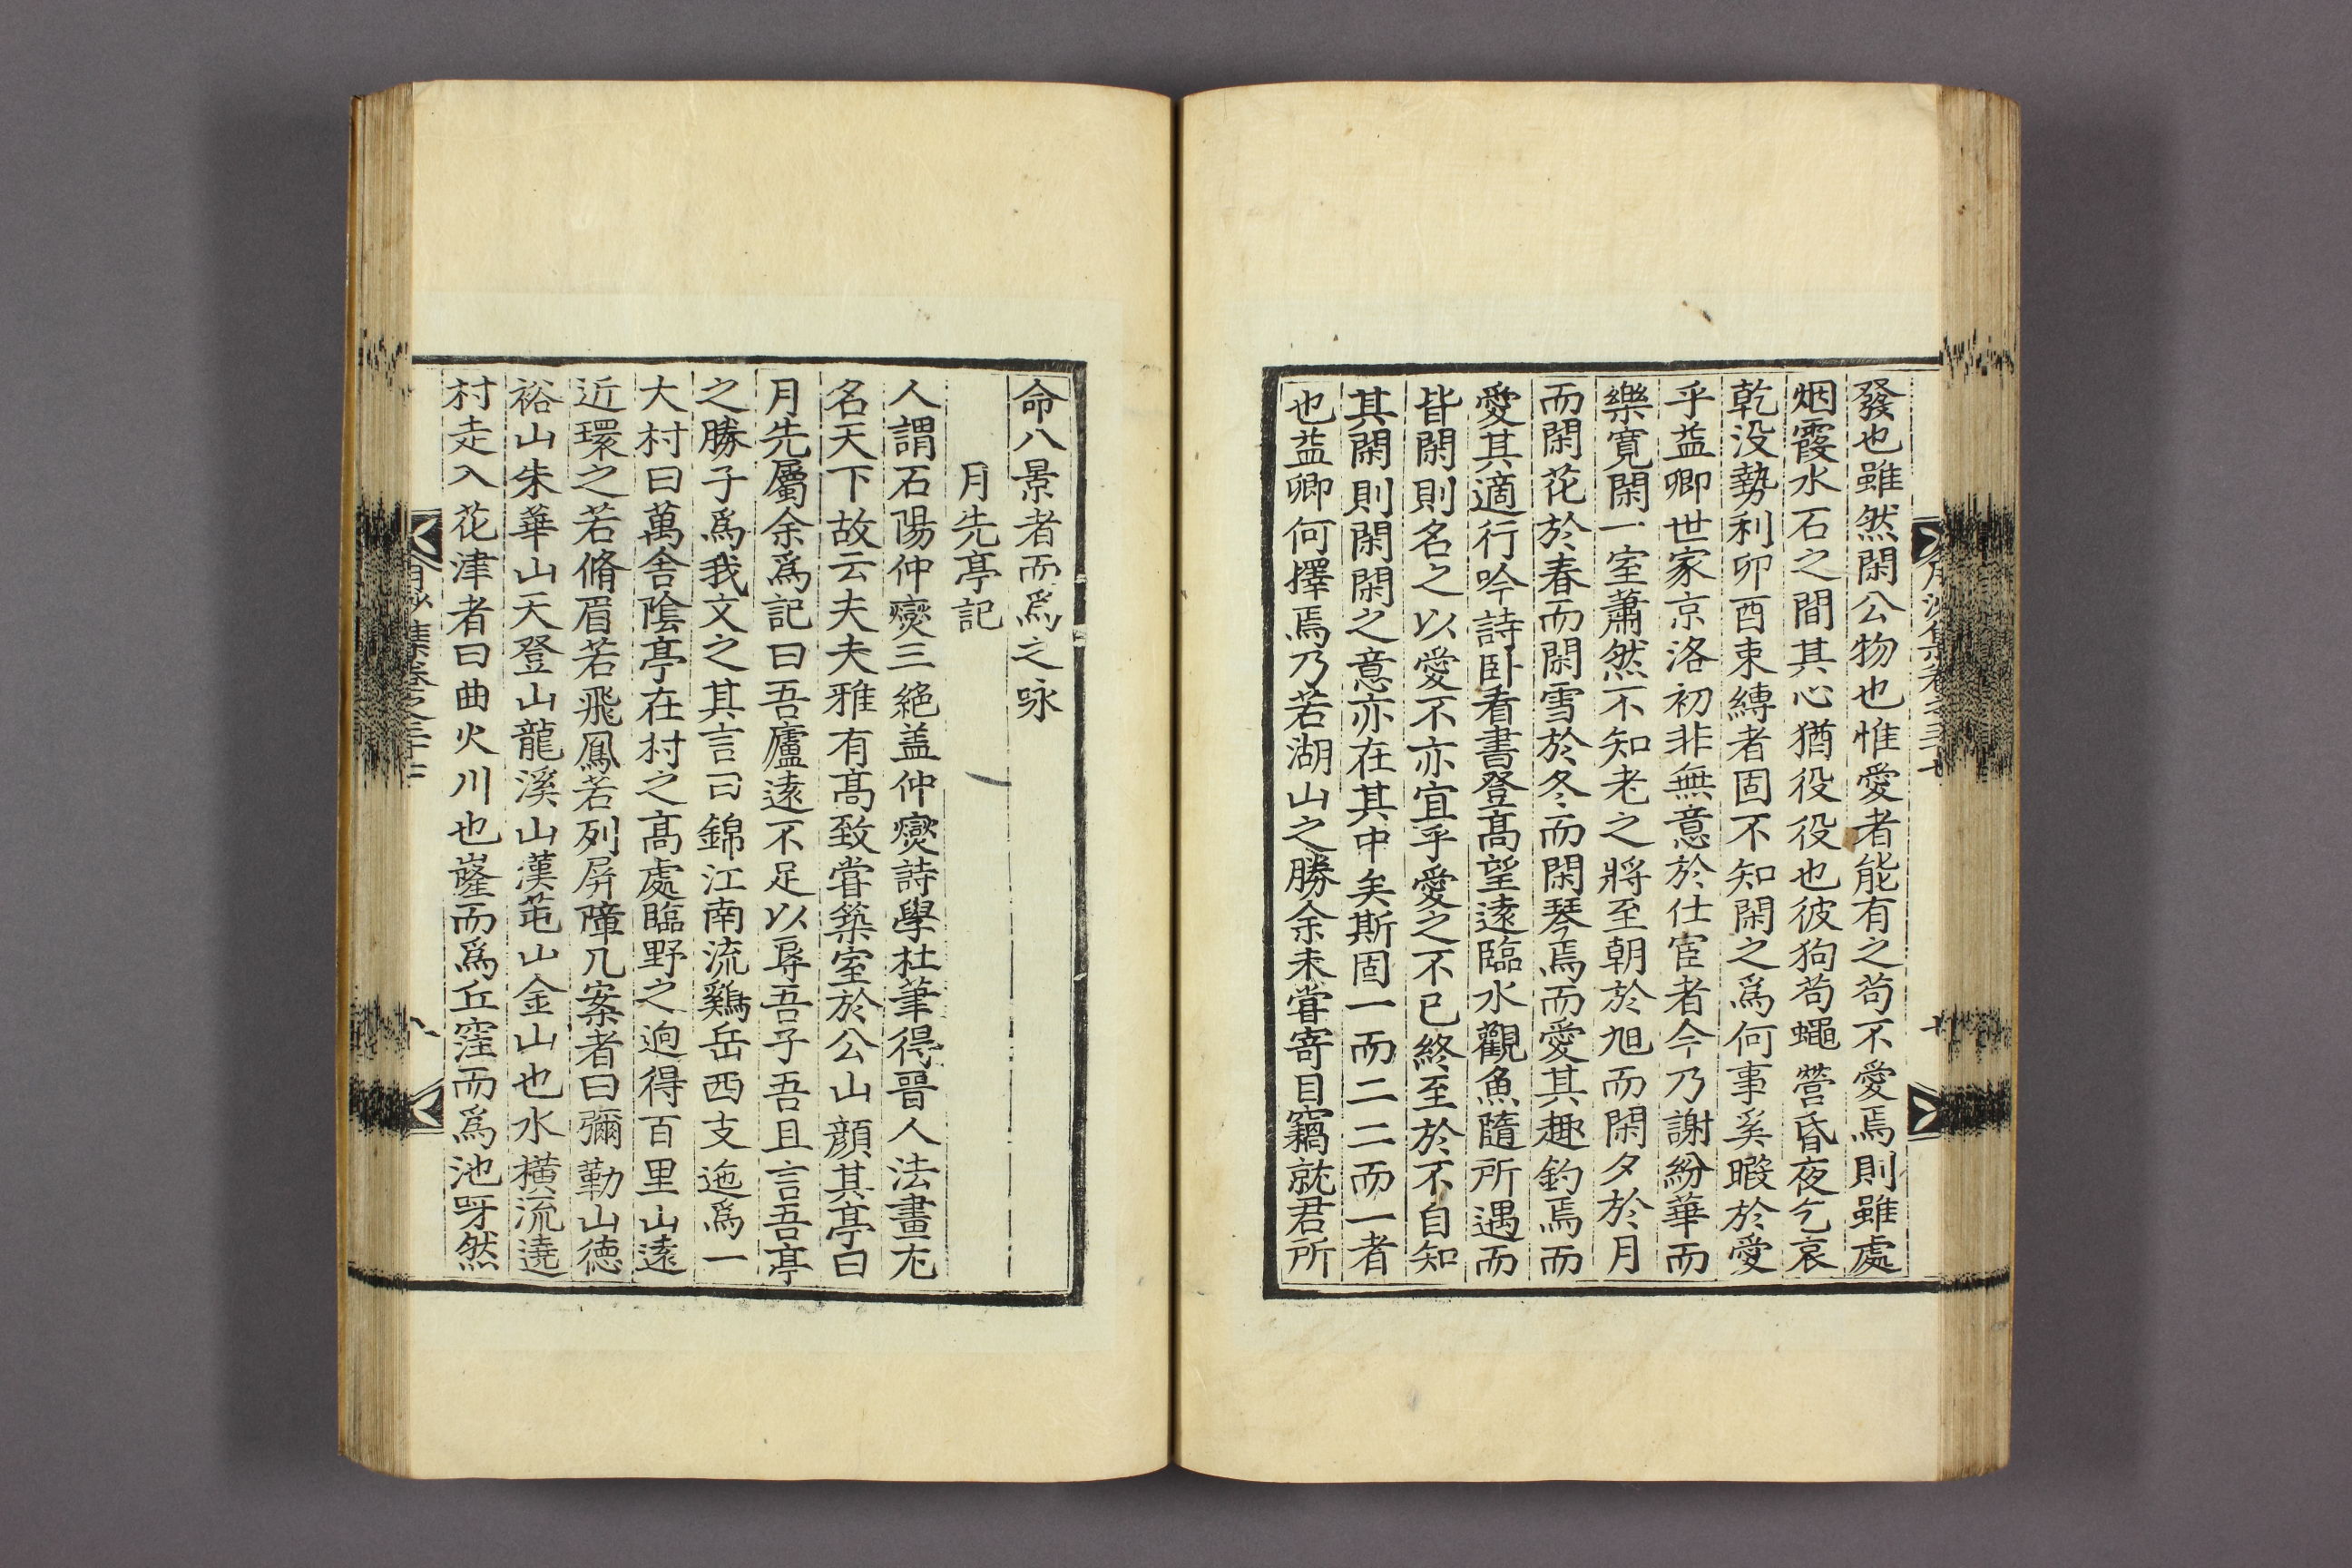 發也雖然閑公物也惟愛者能有之苟不愛焉則雖處
烟霞水石之間其心猶役役也彼狗苟蠅營昏夜乞哀
乾没勢利卯酉束縛者固不知閑之爲何事奚暇於愛
乎益卿世家京洛初非無意於仕宦者今乃謝紛華而
樂寛閑一室蕭然不知老之將至朝於旭而閑夕於月
而閑花於春而閑雪於冬而閑琴焉而愛其趣釣焉而
愛其適行吟詩卧看書登髙望遠臨水觀魚隨所遇而
皆閑則名之以愛不亦宜乎愛之不已終至於不自知
其閑則閑閑之意亦在其中矣斯固一而二二而一者
也益卿何擇焉乃若湖山之勝余未甞寄目竊就君所
命八景者而爲之咏
月先亭記
人謂石陽仲爕三絶盖仲爕詩學杜筆得晉人法畫尤
名天下故云夫夫雅有髙致甞築室於公山顔其亭曰
月先屬余爲記曰吾廬遠不足以辱吾子吾且言吾亭
之勝子爲我文之其言曰錦江南流鷄岳西支迤爲一
大村曰萬舍陰亭在村之髙處臨野之逈得百里山遠
近環之若脩眉若飛鳳若列屏障几案者曰彌勒山德
裕山朱華山天登山龍溪山漢芚山金山也水橫流遶
村走入花津者曰曲火川也窿而爲丘窪而爲池呀然